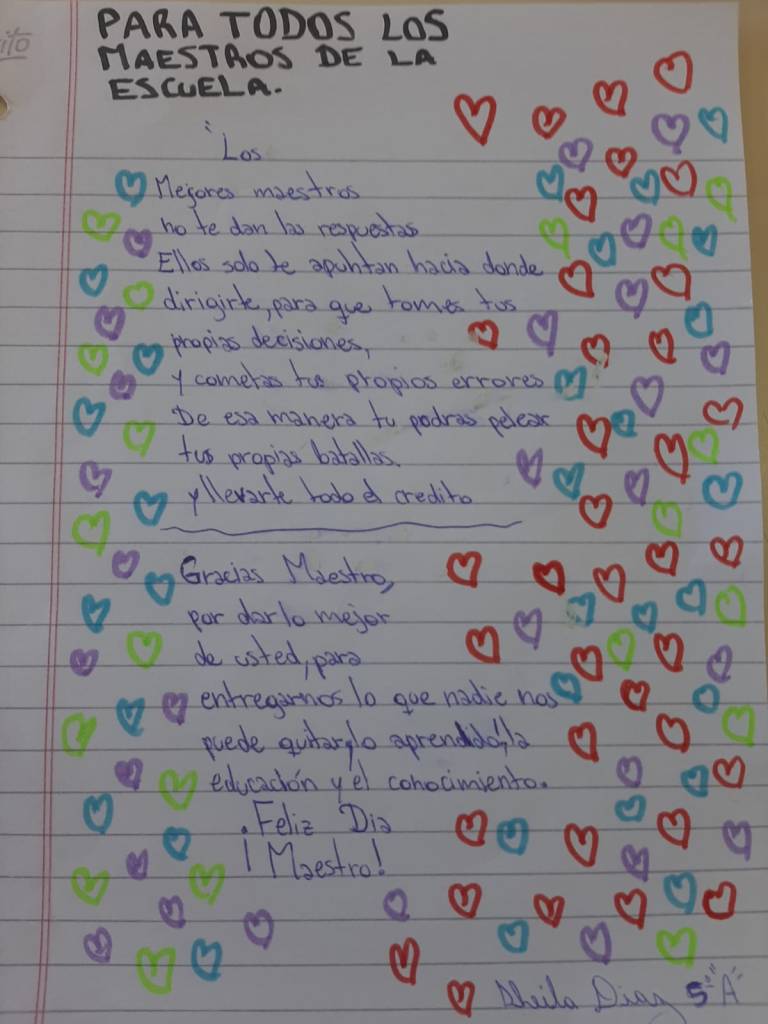 PARA TODOS LOS
MAESTROS DE LA
ESCUELA.
" Los
Mejores maestros
no te dan las respuestas
Ellos solo te apuntan hacia donde
dirigirte, para que tomes tus
propias decisiones,
y cometas tus propios errores
De esa manera tu podras pelear
tus propias batallas.
y llevarte todo el credito
Gracias Maestro,
por dar lo mejor
de usted, para
entregarnos lo que nadie nos
puede quitar, lo aprendido, la
educación y el conocimiento.
.Feliz Dia
¡Maestro!
Sheila Diaz 5"A"